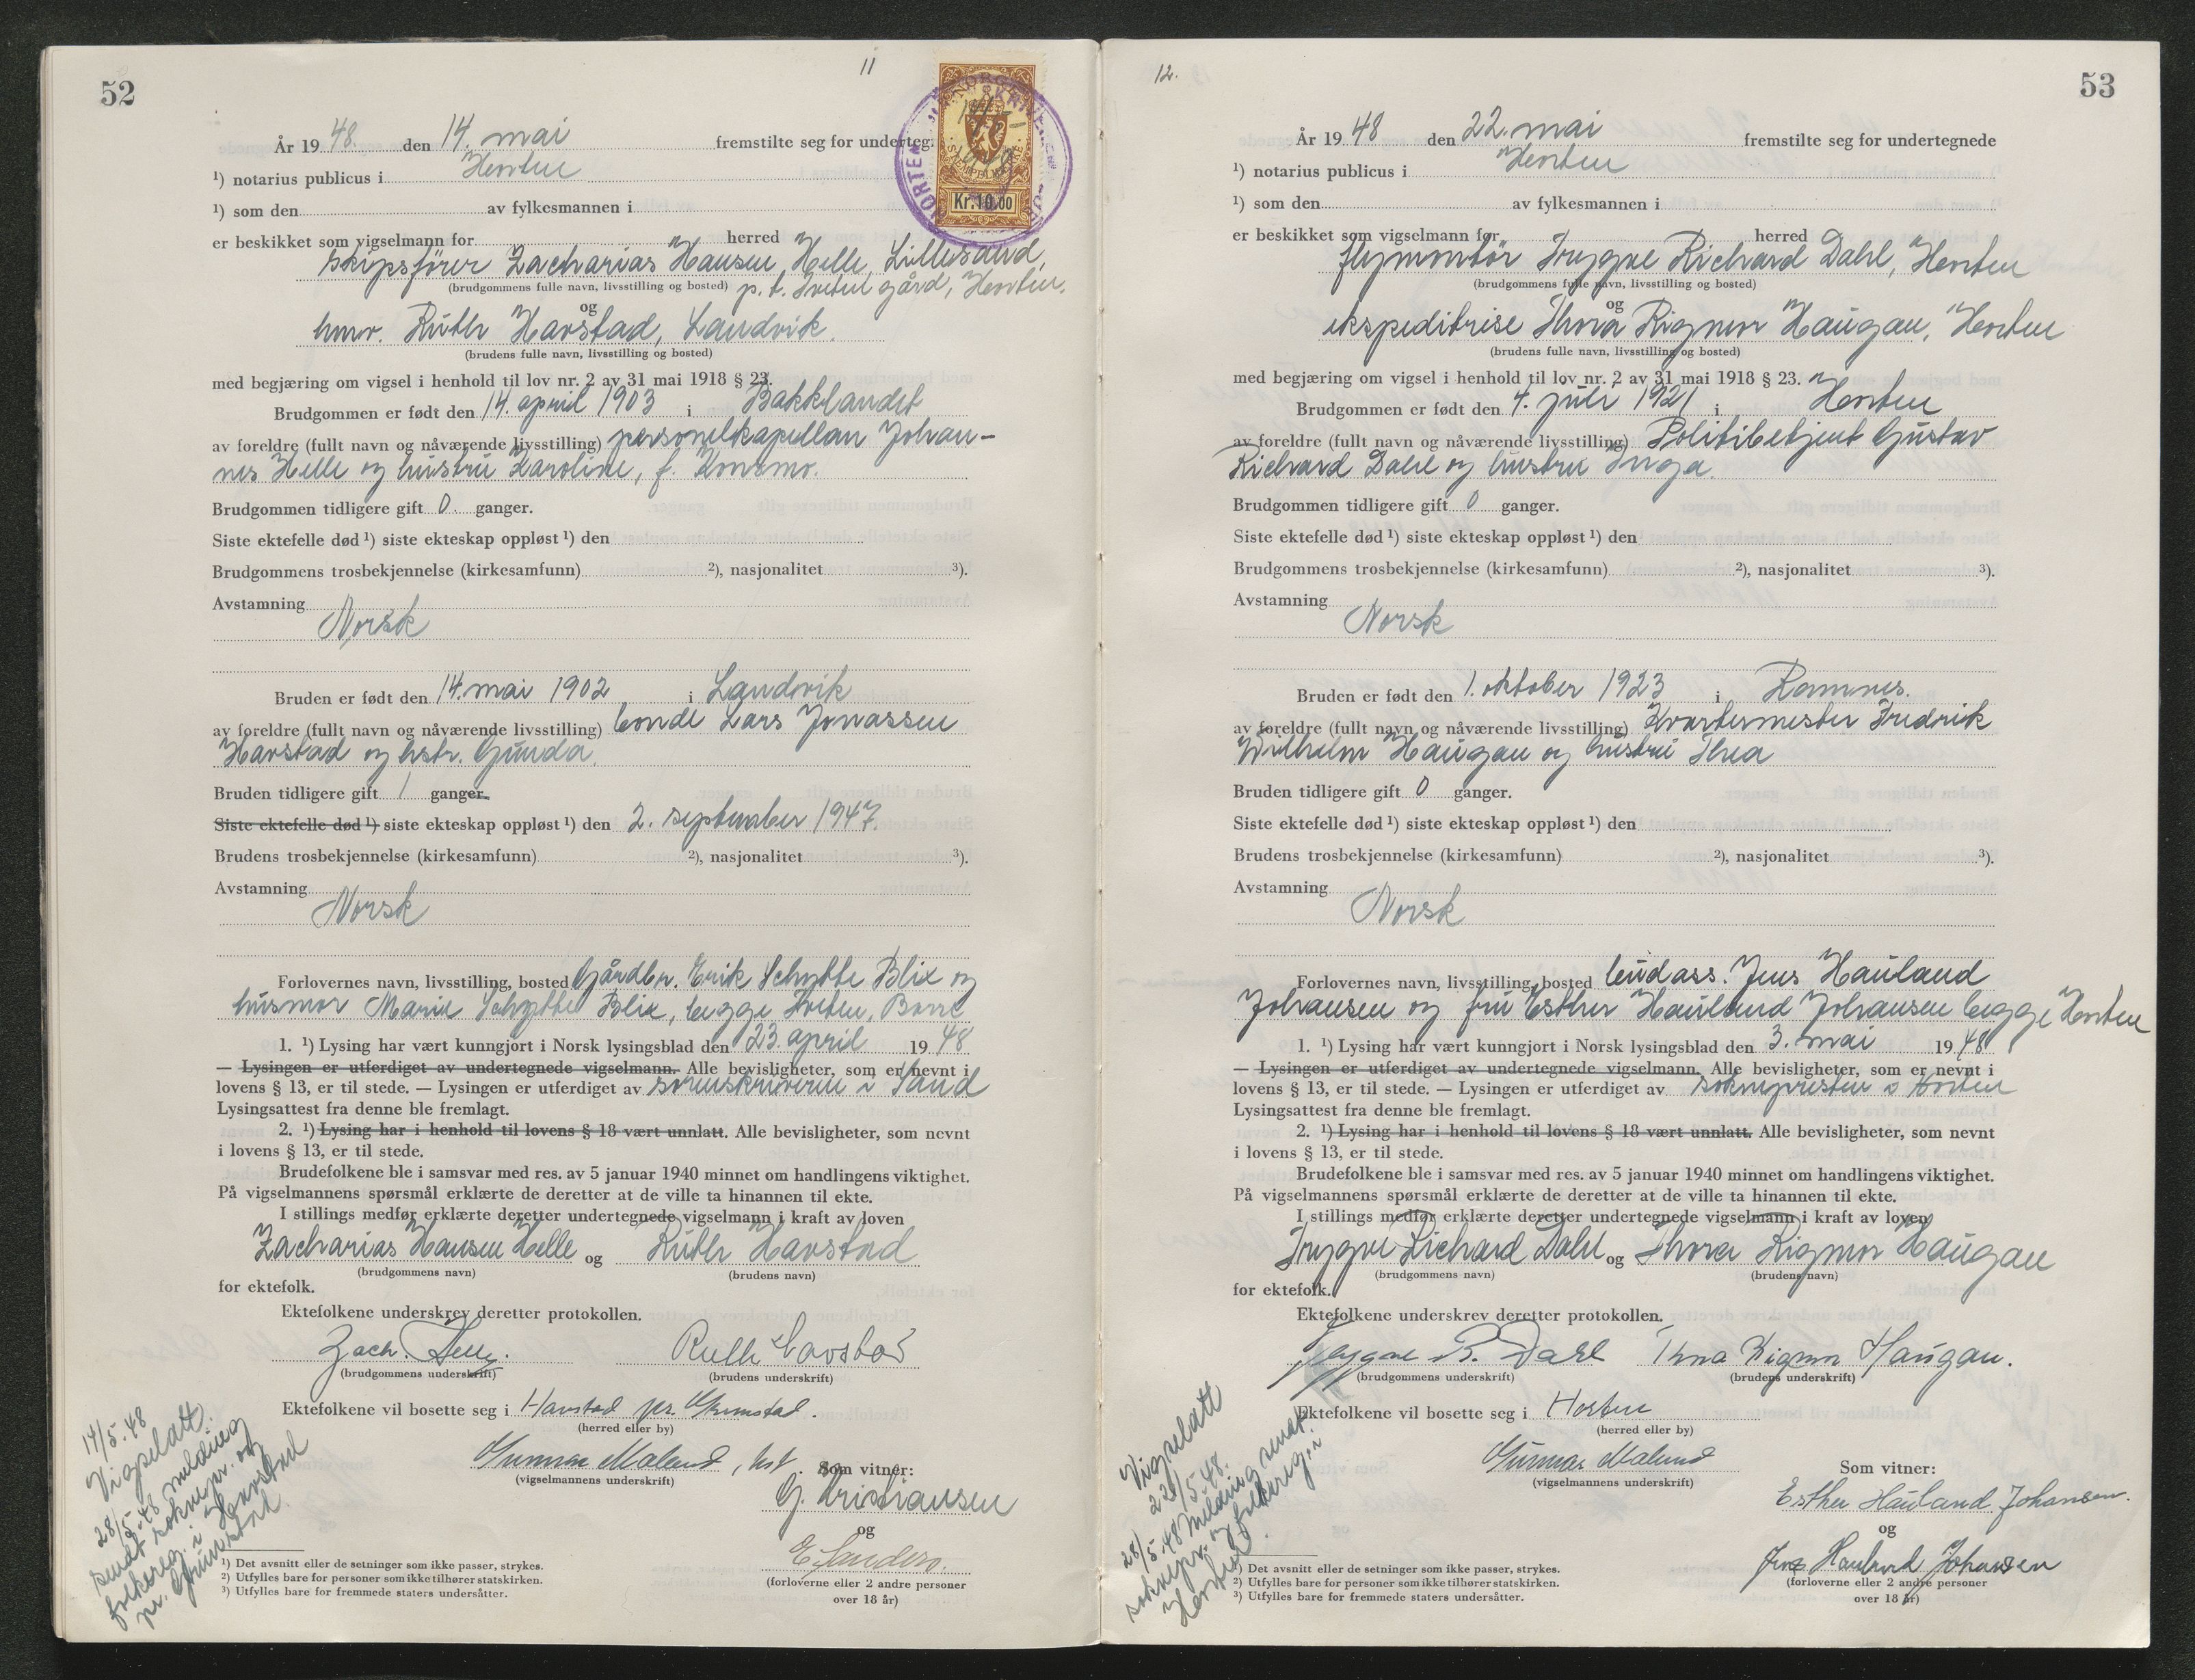 52
11
År 19 48. den 14. mai fremstilte seg for underteg.
¹) notarius publicus i Horten
¹) som den av fylkesmannen i
Kr.10.00
er beskikket som vigselmann for herred
skipsfører Zacharias Hansen Helle, Lillesand,
(brudgommens fulle navn, livsstilling og bosted) p. t. Tveten gård, Horten.
og
hmv. Ruth Havstad, Landvik.
(brudens fulle navn, livsstilling og bosted)
med begjæring om vigsel i henhold til lov nr. 2 av 31 mai 1918 § 23.
Brudgommen er født den 14. april 1903 i Bakklandet
av foreldre (fullt navn og nåværende livsstilling) personelkapellan Johan-
nes Helle og hustru Karoline, f. Konsmo.
Brudgommen tidligere gift 0. ganger.
Siste ektefelle død ¹) siste ekteskap oppløst ¹) den
Brudgommens trosbekjennelse (kirkesamfunn) ²), nasjonalitet ³).
Avstamning
Norsk
Bruden er født den 14. mai 1902 i Landvik
av foreldre (fullt navn og nåværende livsstilling) bonde Lars Jonassen
Havstad og hstr. Gunda.
Bruden tidligere gift 1 ganger.
Siste ektefelle død ¹) siste ekteskap oppløst ¹) den 2. september 1947.
Brudens trosbekjennelse (kirkesamfunn) ²), nasjonalitet ³).
Avstamning
Norsk
Forlovernes navn, livsstilling, bosted Gårdbr. Erik Schytte Blix og
husmor Marie Schytte Blix, begge Tveten, Borre
1. ¹) Lysing har vært kunngjort i Norsk lysingsblad den 23. april 19 48
— Lysingen er utferdiget av undertegnede vigselmann. Alle bevisligheter, som er nevnt i
lovens § 13, er til stede. — Lysingen er utferdiget av sorenskriveren i Sand
Lysingsattest fra denne ble fremlagt.
2. ¹) Lysing har i henhold til lovens § 18 vært unnlatt. Alle bevisligheter, som nevnt
i lovens § 13, er til stede.
Brudefolkene ble i samsvar med res. av 5 januar 1940 minnet om handlingens viktighet.
På vigselmannens spørsmål erklærte de deretter at de ville ta hinannen til ekte.
I stillings medfør erklærte deretter undertegnede vigselmann i kraft av loven
Zacharias Hansen Helle og Ruth Havstad
(brudgommens navn) (brudens navn)
for ektefolk.
Ektefolkene underskrev deretter protokollen.
Zach. Helle. Ruth Havstad
(brudgommens underskrift) (brudens underskrift)
Ektefolkene vil bosette seg i Havstad pr. Grimstad.
(herred eller by)
Gunnar Maland, kst. Som vitner:
(vigselmannens underskrift)
G. Kristiansen
og
E. Sanders.
(forloverne eller 2 andre personer
over 18 år)
14/5.48
Vigselatt.
28/5.48 melding
sendt soknepr. og
folkereg. i Havstad
pr. Grimstad.
¹) Det avsnitt eller de setninger som ikke passer, strykes.
²) Utfylles bare for personer som ikke tilhører statskirken.
³) Utfylles bare for fremmede staters undersåtter.
12.
53
År 19 48 den 22. mai fremstilte seg for undertegnede
¹) notarius publicus i Horten
¹) som den av fylkesmannen i
er beskikket som vigselmann for herred
flymontør Trygve Richard Dahl, Horten
(brudgommens fulle navn, livsstilling og bosted)
og
ekspeditrise Thora Rigmor Haugan, Horten
(brudens fulle navn, livsstilling og bosted)
med begjæring om vigsel i henhold til lov nr. 2 av 31 mai 1918 § 23.
Brudgommen er født den 4. juli 1921 i Horten
av foreldre (fullt navn og nåværende livsstilling) Politibetjent Gustav
Richard Dahl og hustru Inga.
Brudgommen tidligere gift 0 ganger.
Siste ektefelle død ¹) siste ekteskap oppløst ¹) den
Brudgommens trosbekjennelse (kirkesamfunn) ²), nasjonalitet ³).
Avstamning
Norsk
Bruden er født den 1. oktober 1923 i Ramnes.
av foreldre (fullt navn og nåværende livsstilling) Kvartermester Fredrik
Wilhelm Haugan og hustru Thea
Bruden tidligere gift 0 ganger.
Siste ektefelle død ¹) siste ekteskap oppløst ¹) den
Brudens trosbekjennelse (kirkesamfunn) ²), nasjonalitet ³).
Avstamning
Norsk
Forlovernes navn, livsstilling, bosted budass. Jens Hauland
Johansen og fru Esther Hauland Johansen begge Horten
1. ¹) Lysing har vært kunngjort i Norsk lysingsblad den 3. mai 19 48
— Lysingen er utferdiget av undertegnede vigselmann. Alle bevisligheter, som er nevnt i
lovens § 13, er til stede. — Lysingen er utferdiget av soknepresten i Horten
Lysingsattest fra denne ble fremlagt.
2. ¹) Lysing har i henhold til lovens § 18 vært unnlatt. Alle bevisligheter, som nevnt
i lovens § 13, er til stede.
Brudefolkene ble i samsvar med res. av 5 januar 1940 minnet om handlingens viktighet.
På vigselmannens spørsmål erklærte de deretter at de ville ta hinannen til ekte.
I stillings medfør erklærte deretter undertegnede vigselmann i kraft av loven
Trygve Richard Dahl og Thora Rigmor Haugan
(brudgommens navn) (brudens navn)
for ektefolk.
Ektefolkene underskrev deretter protokollen.
Trygve R. Dahl Thora Rigmor Haugan.
(brudgommens underskrift) (brudens underskrift)
Ektefolkene vil bosette seg i Horten
(herred eller by)
Gunnar Maland
(vigselmannens underskrift)
Som vitner:
Esther Hauland Johansen.
og
Jens Hauland Johansen
(forloverne eller 2 andre personer
over 18 år)
Vigselatt
22/5.48.
28/5.48 melding sendt
soknepr. og folkereg. i
Horten.
¹) Det avsnitt eller de setninger som ikke passer, strykes.
²) Utfylles bare for personer som ikke tilhører statskirken.
³) Utfylles bare for fremmede staters undersåtter.